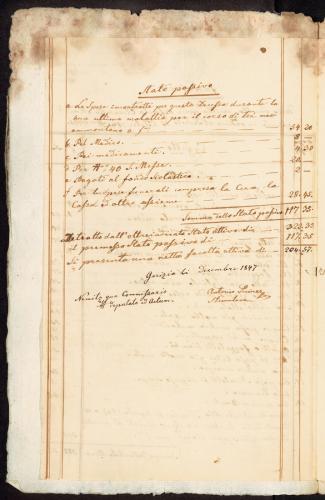 Stato passivo
a Le Spese incontrate per questa Decessa durante la
sua ultima malattia per il corso di tre mesi
ammontano a f 54 20
b Pel Medico. 8
c Pei medicamenti. 4 30
d Per N 40 S. Messe. 20
e Pagati al fondo scolastico 2
f Per le spese funerali compresa la Cera, la
Cassa ed altre 28 45.
Somma dello Stato passivo 117 35.
Detratto dall'oltrescritto Stato attivo di 322 32
il premesso Stato passivo di 117 35
Si presenta una netta facoltà attiva di 204 57.
Gorizia li dicembre 1847
qua Commissario
Antonio